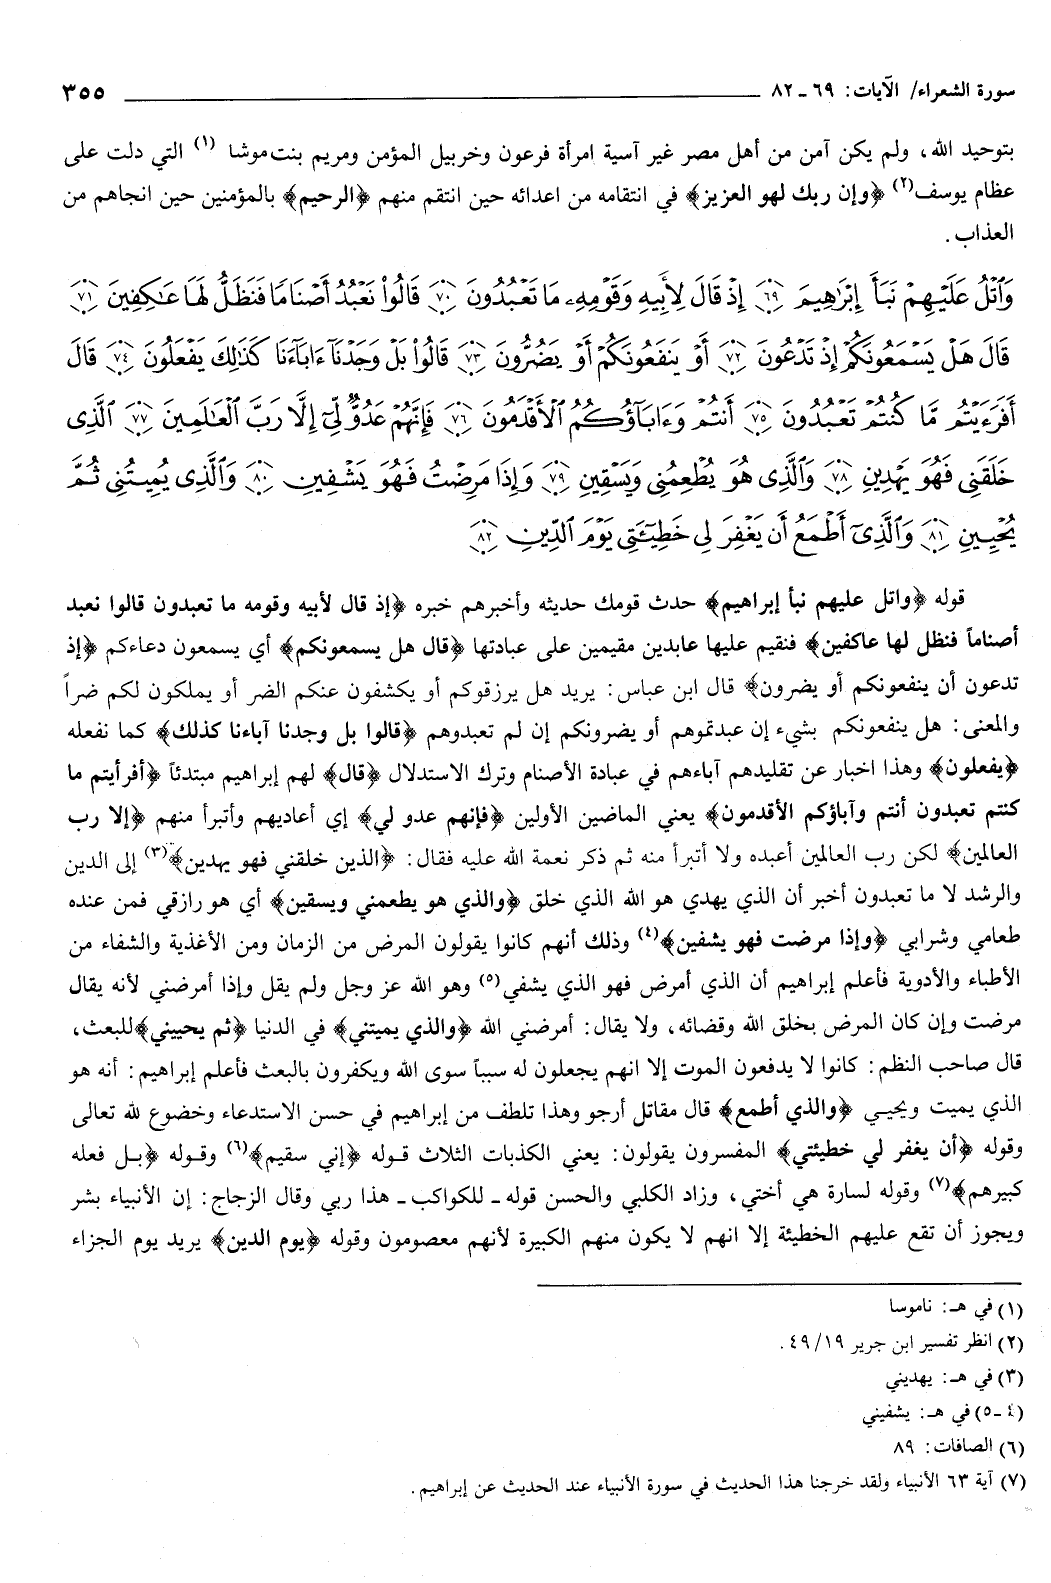 سورة الشعراء/ الآيات: ٦٩ ـ ٨٢ ٣٥٥
بتوحيد الله، ولم يكن آمن من أهل مصر غير آسية امرأة فرعون وخربيل المؤمن ومريم بنت موشا (١) التي دلت على
عظام يوسف(٢) ﴿وإن ربك لهو العزيز﴾ في انتقامه من اعدائه حين انتقم منهم ﴿الرحيم﴾ بالمؤمنين حين انجاهم من
العذاب.
وَٱتْلُ عَلَيْهِمْ نَبَأَ إِبْرَٰهِيمَ ٦٩ إِذْ قَالَ لِأَبِيهِ وَقَوْمِهِۦ مَا تَعْبُدُونَ ٧٠ قَالُوا۟ نَعْبُدُ أَصْنَامًا فَنَظَلُّ لَهَا عَٰكِفِينَ ٧١
قَالَ هَلْ يَسْمَعُونَكُمْ إِذْ تَدْعُونَ ٧٢ أَوْ يَنفَعُونَكُمْ أَوْ يَضُرُّونَ ٧٣ قَالُوا۟ بَلْ وَجَدْنَآ ءَابَآءَنَا كَذَٰلِكَ يَفْعَلُونَ ٧٤ قَالَ
أَفَرَءَيْتُم مَّا كُنتُمْ تَعْبُدُونَ ٧٥ أَنتُمْ وَءَابَآؤُكُمُ ٱلْأَقْدَمُونَ ٧٦ فَإِنَّهُمْ عَدُوٌّ لِّىٓ إِلَّا رَبَّ ٱلْعَٰلَمِينَ ٧٧ ٱلَّذِى
خَلَقَنِى فَهُوَ يَهْدِينِ ٧٨ وَٱلَّذِى هُوَ يُطْعِمُنِى وَيَسْقِينِ ٧٩ وَإِذَا مَرِضْتُ فَهُوَ يَشْفِينِ ٨٠ وَٱلَّذِى يُمِيتُنِى ثُمَّ
يُحْيِينِ ٨١ وَٱلَّذِىٓ أَطْمَعُ أَن يَغْفِرَ لِى خَطِيٓـَٔتِى يَوْمَ ٱلدِّينِ ٨٢
قوله ﴿واتل عليهم نبأ إبراهيم﴾ حدث قومك حديثه وأخبرهم خبره ﴿إذ قال لأبيه وقومه ما تعبدون قالوا نعبد
أصناماً فنظل لها عاكفين﴾ فنقيم عليها عابدين مقيمين على عبادتها ﴿قال هل يسمعونكم﴾ أي يسمعون دعاءكم ﴿إذ
تدعون أن ينفعونكم أو يضرون﴾ قال ابن عباس: يريد هل يرزقوكم أو يكشفون عنكم الضر أو يملكون لكم ضراً
والمعنى: هل ينفعونكم بشيء إن عبدتموهم أو يضرونكم إن لم تعبدوهم ﴿قالوا بل وجدنا آباءنا كذلك﴾ كما نفعله
﴿يفعلون﴾ وهذا اخبار عن تقليدهم آباءهم في عبادة الأصنام وترك الاستدلال ﴿قال﴾ لهم إبراهيم مبتدئاً ﴿أفرأيتم ما
كنتم تعبدون أنتم وآباؤكم الأقدمون﴾ يعني الماضين الأولين ﴿فإنهم عدو لي﴾ إي أعاديهم وأتبرأ منهم ﴿إلا رب
العالمين﴾ لكن رب العالمين أعبده ولا أتبرأ منه ثم ذكر نعمة الله عليه فقال: ﴿الذين خلقني فهو يهدين﴾(٣) إلى الدين
والرشد لا ما تعبدون أخبر أن الذي يهدي هو الله الذي خلق ﴿والذي هو يطعمني ويسقين﴾ أي هو رازقي فمن عنده
طعامي وشرابي ﴿وإذا مرضت فهو يشفين﴾(٤) وذلك أنهم كانوا يقولون المرض من الزمان ومن الأغذية والشفاء من
الأطباء والأدوية فأعلم إبراهيم أن الذي أمرض فهو الذي يشفي(٥) وهو الله عز وجل ولم يقل وإذا أمرضني لأنه يقال
مرضت وإن كان المرض بخلق الله وقضائه، ولا يقال: أمرضني الله ﴿والذي يميتني﴾ في الدنيا ﴿ثم يحييني﴾للبعث،
قال صاحب النظم: كانوا لا يدفعون الموت إلا انهم يجعلون له سبباً سوى الله ويكفرون بالبعث فأعلم إبراهيم: أنه هو
الذي يميت ويحيي ﴿والذي أطمع﴾ قال مقاتل أرجو وهذا تلطف من إبراهيم في حسن الاستدعاء وخضوع لله تعالى
وقوله ﴿أن يغفر لي خطيئتي﴾ المفسرون يقولون: يعني الكذبات الثلاث قوله ﴿إني سقيم﴾(٦) وقوله ﴿بل فعله
كبيرهم﴾(٧) وقوله لسارة هي أختي، وزاد الكلبي والحسن قوله ـ للكواكب ـ هذا ربي وقال الزجاج: إن الأنبياء بشر
ويجوز أن تقع عليهم الخطيئة إلا انهم لا يكون منهم الكبيرة لأنهم معصومون وقوله ﴿يوم الدين﴾ يريد يوم الجزاء
(١) في هـ: ناموسا
(٢) انظر تفسير ابن جرير ١٩/ ٤٩.
(٣) في هـ: يهديني
(٤ ـ ٥) في هـ: يشفيني
(٦) الصافات: ٨٩
(٧) آية ٦٣ الأنبياء ولقد خرجنا هذا الحديث في سورة الأنبياء عند الحديث عن إبراهيم.